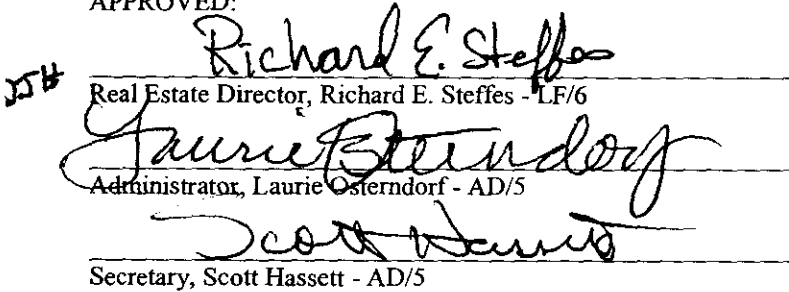 APPROVED:
Richard E. Steffes
Real Estate Director, Richard E. Steffes - LF/6
Laurie Osterndorf
Administrator, Laurie Osterndorf - AD/5
Scott Hassett
Secretary, Scott Hassett - AD/5